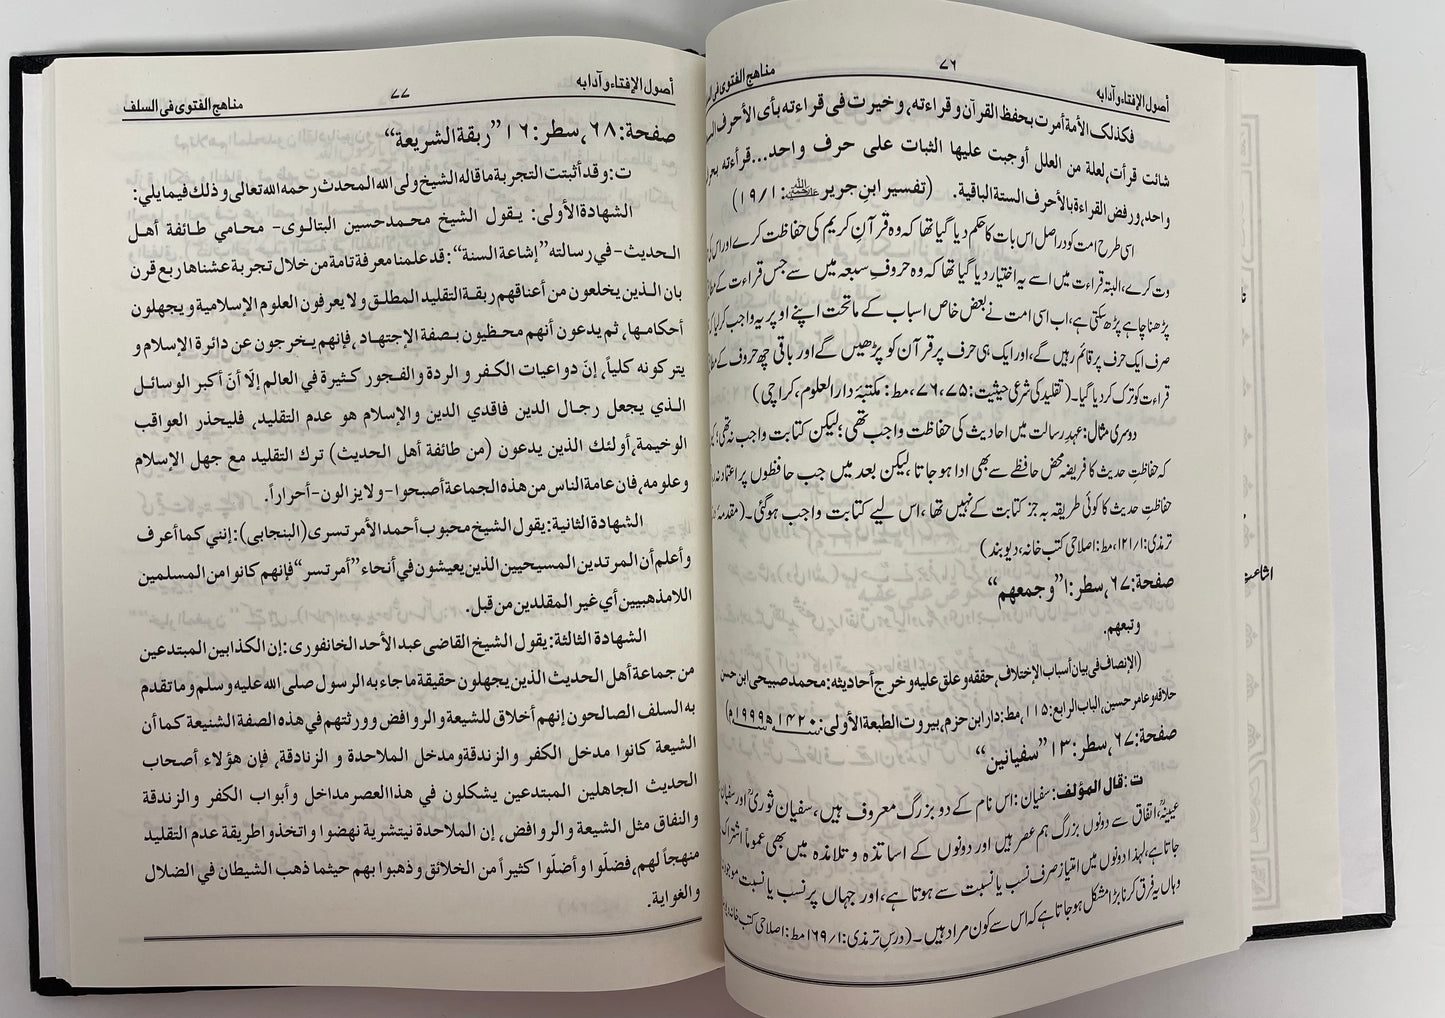 أصول الإفتاء و آدابه
٧٦
مناهج الفتوى في
فكذلك الأمة أمرت بحفظ القرآن و قراءته، و خيرت في قراءته بأي الأحرف
شائت قرأت، لعلة من العلل أوجبت عليها الثبات على حرف واحد...قراءته
واحد، ورفض القراءة بالأحرف الستة الباقية. (تفسير ابن جرير: ١٩/١)
اسی طرح امت کو دراصل اس بات کا حکم دیا گیا تھا کہ وہ قرآن کریم کی حفاظت کرے اور اس کی
وت کرے، البتہ قراءت میں اسے یہ اختیار دیا گیا تھا کہ وہ حروفِ سبعہ میں سے جس قراءت کے
پڑھنا چاہے پڑھ سکتی ہے، اب اسی امت نے بعض خاص اسباب کے ماتحت اپنے اوپر یہ واجب کر لیا
صرف ایک حرف پر قائم رہیں گے، اور ایک ہی حرف پر قرآن کو پڑھیں گے اور باقی چھ حروف کے
قراءت کو ترک کر دیا گیا۔ (تقلید کی شرعی حیثیت: ۷۵، ۷۶، مط: مکتبۂ دارالعلوم، کراچی)
دوسری مثال: عہدِ رسالت میں احادیث کی حفاظت واجب تھی؛ لیکن کتابت واجب نہ تھی؛
کہ حفاظتِ حدیث کا فریضہ محض حافظے سے بھی ادا ہو جاتا، لیکن بعد میں جب حافظوں پر اعتماد نہ
حفاظتِ حدیث کا کوئی طریقہ بہ جز کتابت کے نہیں تھا، اس لیے کتابت واجب ہو گئی۔ (مقدمہ
ترمذی: ۱۲۱/۱، مط: اصلاحی کتب خانہ، دیوبند)
صفحة: ٦٧، سطر: ١ ”وجمعهم“
وتبعهم.
(الإنصاف في بيان أسباب الإختلاف، حققه و علق عليه و خرج أحاديثه: محمد صبيحي ابن حسن
حلاقه و عامر حسين، الباب الرابع: ١١٥، مط: دار ابن حزم، بيروت الطبعة الأولى: ١٤٢٠ھ ١٩٩٩م)
صفحة: ٦٧، سطر: ١٣ ”سفيانين“
ت: قال المؤلف: سفیان: اس نام کے دو بزرگ معروف ہیں، سفیان ثوریؒ اور سفیان
عیینہؒ، اتفاق سے دونوں بزرگ ہم عصر ہیں اور دونوں کے اساتذہ و تلامذہ میں بھی عموماً اشتراک
جاتا ہے، لہذا دونوں میں امتیاز صرف نسب یا نسبت سے ہوتا ہے، اور جہاں پر نسب یا نسبت موجود
وہاں یہ فرق کرنا بڑا مشکل ہو جاتا ہے کہ اس سے کون مراد ہیں۔ (درسِ ترمذی: ۱۶۹/۱ مط: اصلاحی کتب خانہ
أصول الإفتاء و آدابه
٧٧
مناهج الفتوى في السلف
صفحة: ٦٨، سطر: ١٦ ”ربقة الشريعة“
ت: و قد أثبتت التجربة ما قاله الشيخ ولي الله المحدث رحمه الله تعالى و ذلك فيما يلي:
الشهادة الأولى: يقول الشيخ محمد حسين البتالوي - محامي طائفة أهل
الحديث - في رسالته ”إشاعة السنة“: قد علمنا معرفة تامة من خلال تجربة عشناها ربع قرن
بان الذين يخلعون من أعناقهم ربقة التقليد المطلق و لا يعرفون العلوم الإسلامية و يجهلون
أحكامها، ثم يدعون أنهم محظيون بصفة الإجتهاد، فإنهم يخرجون عن دائرة الإسلام و
يتركونه كلياً، إنّ دواعيات الكفر و الردة والفجور كثيرة في العالم إلّا أنّ أكبر الوسائل
الذي يجعل رجال الدين فاقدي الدين والإسلام هو عدم التقليد، فليحذر العواقب
الوخيمة، أولئك الذين يدعون (من طائفة أهل الحديث) ترك التقليد مع جهل الإسلام
و علومه، فان عامة الناس من هذه الجماعة أصبحوا - ولايزالون - أحراراً.
الشهادة الثانية: يقول الشيخ محبوب أحمد الأمر تسري (البنجابي): إنني كما أعرف
و أعلم أن المرتدين المسيحيين الذين يعيشون في أنحاء ”أمرتسر“ فإنهم كانوا من المسلمين
اللامذهبيين أي غير المقلدين من قبل.
الشهادة الثالثة: يقول الشيخ القاضي عبد الأحد الخانفوري: إن الكذابين المبتدعين
من جماعة أهل الحديث الذين يجهلون حقيقة ما جاء به الرسول صلى الله عليه وسلم و ما تقدم
به السلف الصالحون إنهم أخلاق للشيعة والروافض وورثتهم في هذه الصفة الشنيعة كما أن
الشيعة كانوا مدخل الكفر والزندقة ومدخل الملاحدة و الزنادقة، فإن هؤلاء أصحاب
الحديث الجاهلين المبتدعين يشكلون في هذا العصر مداخل و أبواب الكفر والزندقة
والنفاق مثل الشيعة والروافض، إن الملاحدة نيتشرية نهضوا و اتخذوا طريقة عدم التقليد
منهجاً لهم، فضلّوا و أضلّوا كثيراً من الخلائق و ذهبوا بهم حيثما ذهب الشيطان في الضلال
والغواية.